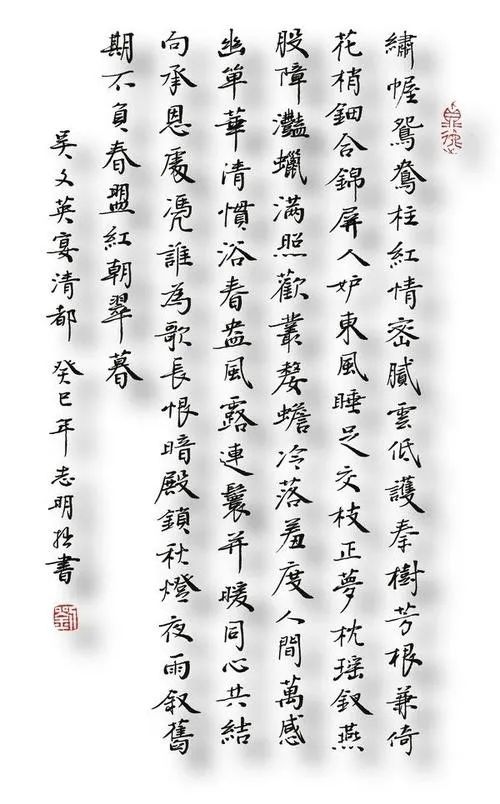 繡幄鴛鴦柱紅情密膩雲低護秦樹芳根兼倚
花梢鈿合錦屏人妒東風睡足交枝正夢枕瑶釵燕
股障灩蠟满照歡叢嫠蟾冷落羞度人間萬感
幽單華清慣浴春盎風露連鬟并暖同心共結
向承恩處凭誰為歌長恨暗殿鎖秋燈夜雨叙舊
期不負春盟紅朝翠暮
吴文英宴清都 癸巳年志明拙書